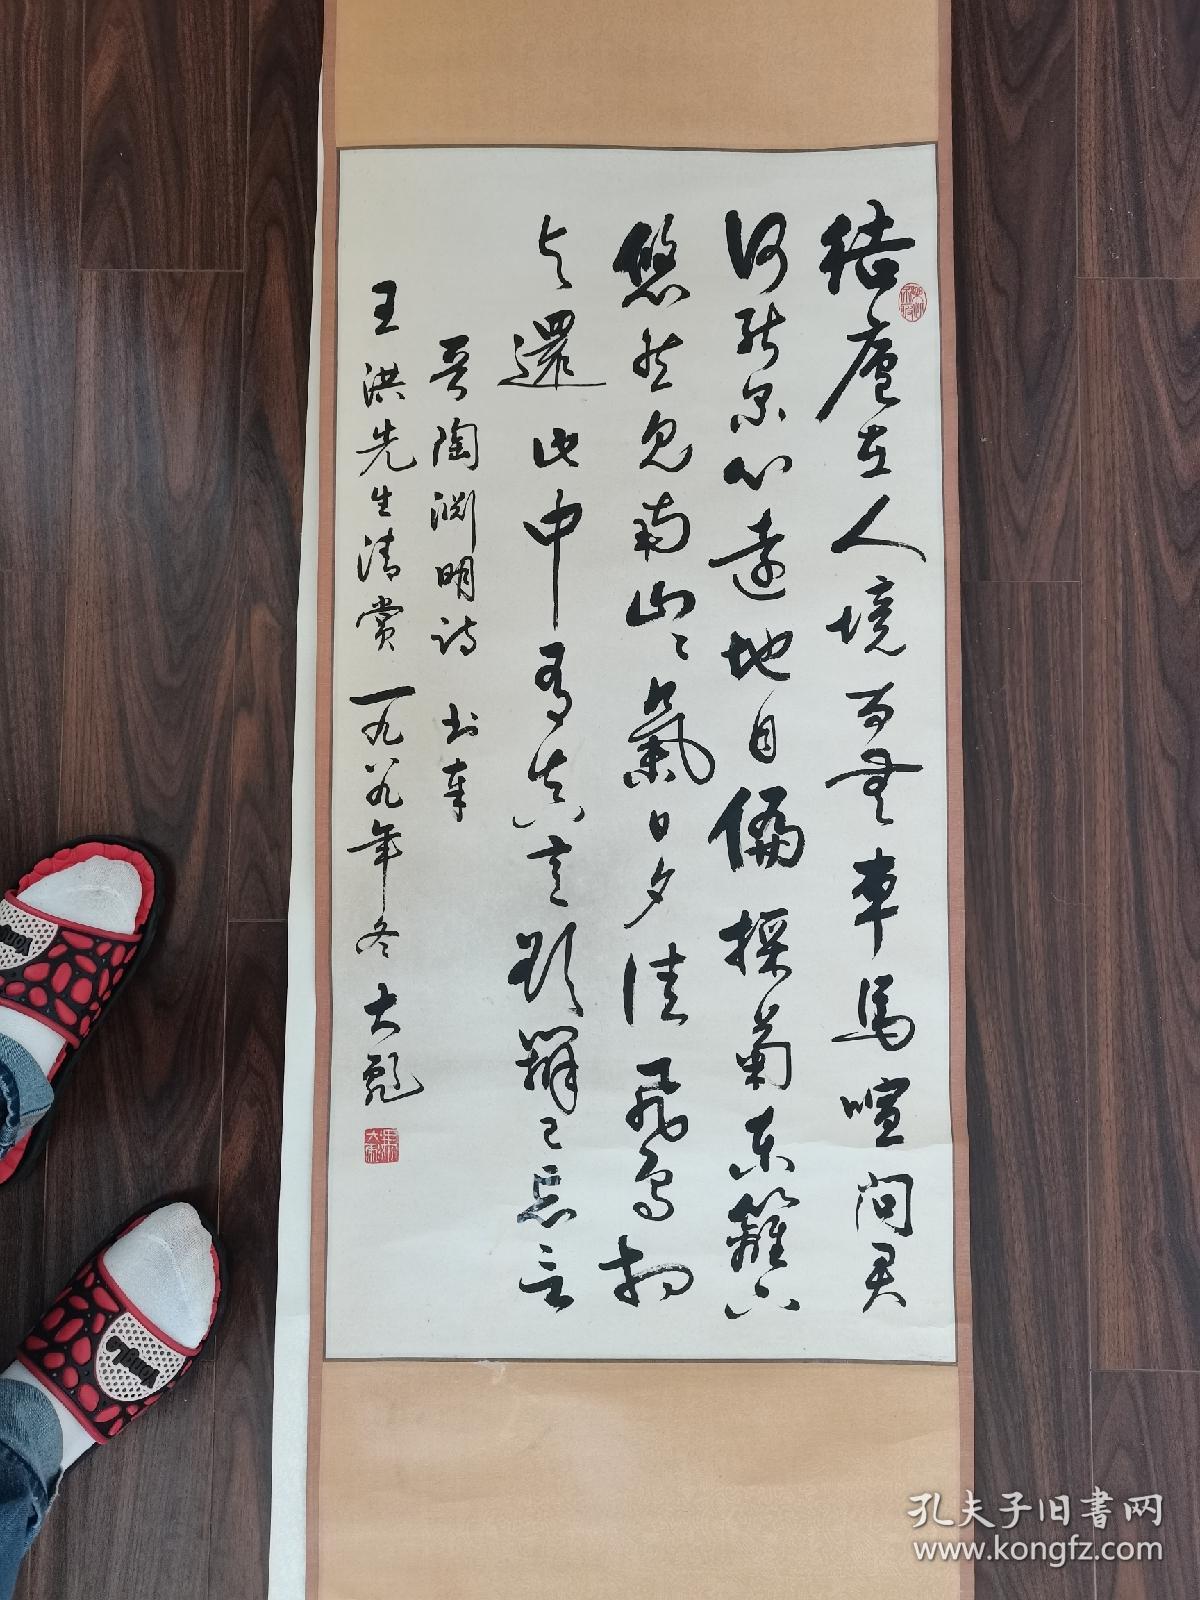 结庐在人境而无车马喧问君
何能尔心远地自偏採菊东篱下
悠然见南山山氣日夕佳飛鸟相
与還此中有真意欲辨已忘言
晋陶渊明诗 书奉
王洪先生清赏 一九八九年冬 大彪
YongLe
孔夫子旧书网
www.kongfz.com